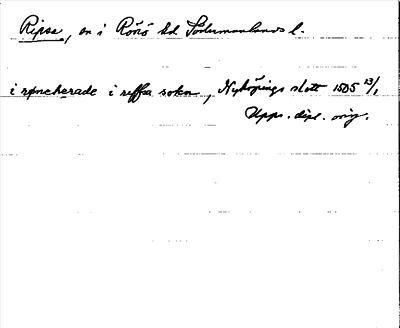 Ripsa, sn i Rönö hd Södermanlands l.
i røncherade i reffsa sokn, Nyköpings slott 1505 13/1
Upps. dipl. orig.